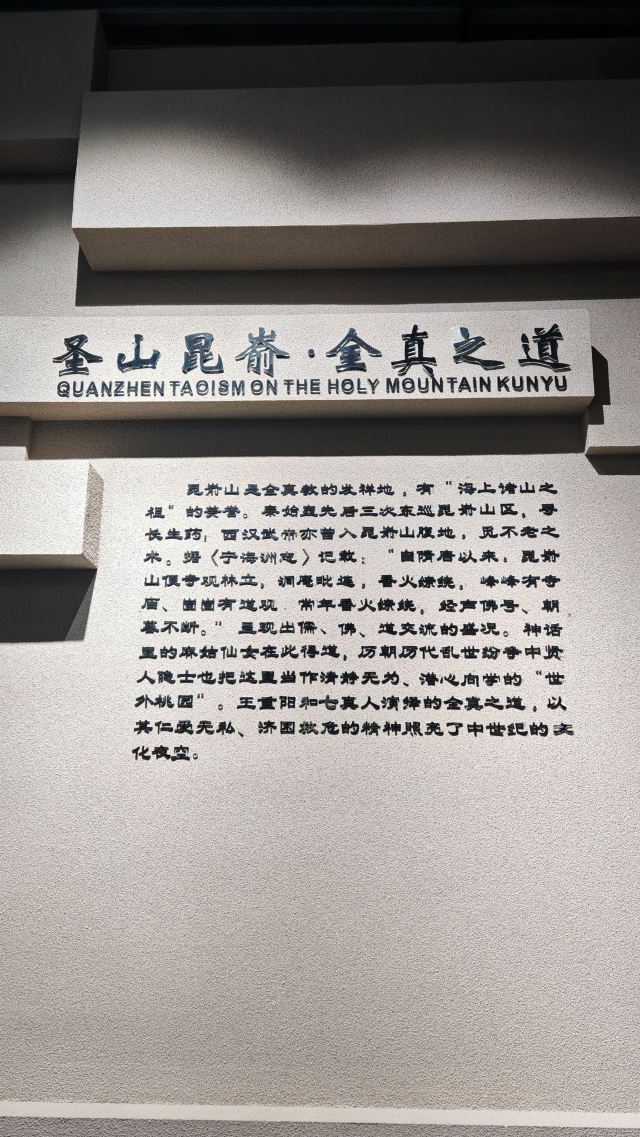 圣山昆嵛·全真之道
QUANZHEN TAOISM ON THE HOLY MOUNTAIN KUNYU
昆嵛山是全真教的发祥地，有“海上诸山之
祖”的美誉。秦始皇先后三次东巡昆嵛山区，寻
长生药；西汉武帝亦曾入昆嵛山腹地，觅不老之
术。据《宁海洲志》记载：“自隋唐以来，昆嵛
山便寺观林立，洞庵毗连，香火缭绕，峰峰有寺
庙、崮崮有道观．常年香火缭绕，经声佛号、朝
暮不断。”呈现出儒、佛、道交流的盛况。神话
里的麻姑仙女在此得道，历朝历代乱世纷争中贤
人隐士也把这里当作清静无为、潜心向学的“世
外桃园”。王重阳和七真人演绎的全真之道，以
其仁爱无私、济困救危的精神照亮了中世纪的文
化夜空。